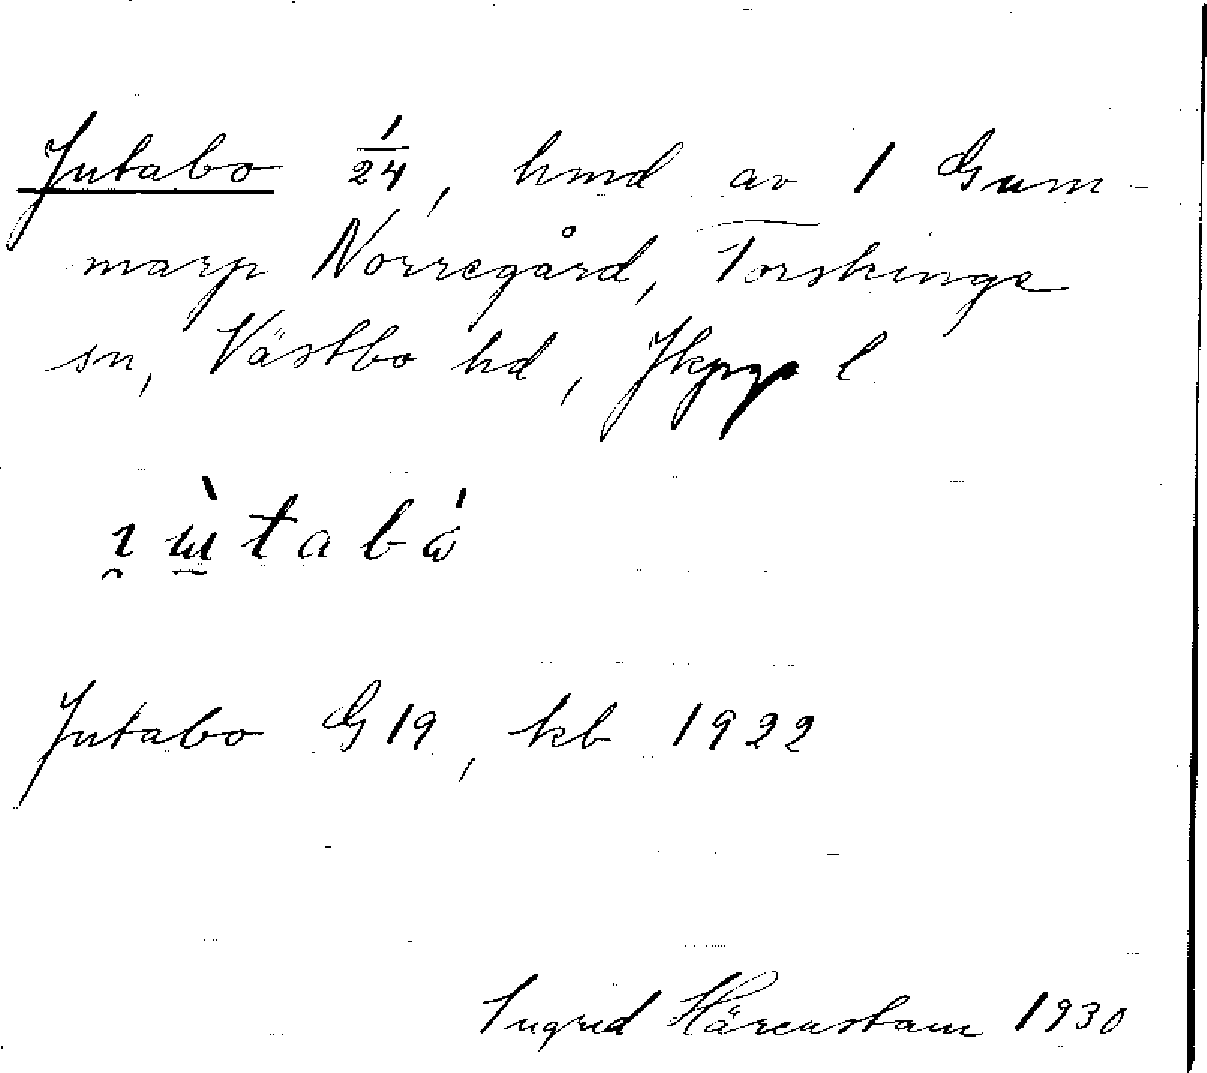 Jutabo 1/24, hmd av 1 Gum-
marp Norregård, Torskinge
sn, Västbo hd, Jkpg l
Jutabo G 19, kb 1922
Ingrid Härenstam 1930